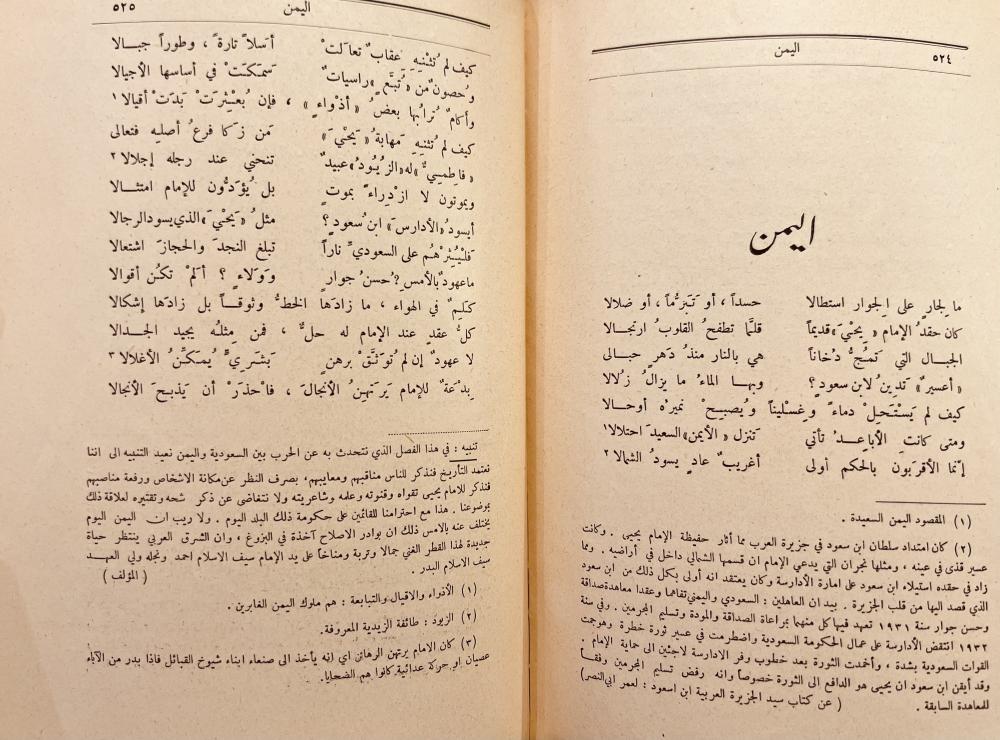 اليمن
٥٢٤
اليمن
ما لجارٍ على الجوار استطالا
حسداً ، أو تَبَرُّماً ، أو ضلالا
كان حقدُ الإمام « يحْيىَ » قديماً
قلَّما تطفحُ القلوبُ ارتجالا
الجبال التي تَمُجُّ دُخاناً
هي بالنار منذُ دَهرٍ حبالى
« أعسيرٌ » تَدينُ لابن سعودٍ ؟
وبها الماءُ ما يزالُ زُلالا
كيف لم يَسْتَحِلْ دماءً وغِسْليناً ويُصبِحْ نميرُه أوحالا
ومتى كانتِ الأباعدُ تأتي
تَنزل « الأيمن » السعيدَ احتلالا١
إنّما الأقربون بالحكم أولى
أغريبٌ عادٍ يسودُ الشمالا٢
(١) المقصود اليمن السعيدة .
(٢) كان امتداد سلطان ابن سعود في جزيرة العرب مما أثار حفيظة الإمام يحيى . وكانت
عسير قذى في عينه ، ومثلها نجران التي يدعي الإمام ان قسمها الشمالي داخل في أراضيه . ومما
زاد في حقده استيلاء ابن سعود على امارة الأدارسة وكان يعتقد انه أولى بكل ذلك من ابن سعود
الذي قصد اليها من قلب الجزيرة . بيد ان العاهلين : السعودي واليمني تفاهما وعقدا معاهدة صداقة
وحسن جوار سنة ١٩٣١ تعهد فيها كل منهما بمراعاة الصداقة والمودة وتسليم المجرمين . وفي سنة
١٩٣٢ انتقض الأدارسة على عمال الحكومة السعودية واضطرمت في عسير ثورة خطرة وهوجمت
القوات السعودية بشدة ، وأخمدت الثورة بعد خطوب وفر الادارسة لاجئين الى حماية الإمام .
وقد أيقن ابن سعود ان يحيى هو الدافع الى الثورة خصوصاً وانه رفض تسليم المجرمين وفقاً
للمعاهدة السابقة . ( عن كتاب سيد الجزيرة العربية ابن اسعود : لعمر ابي النصر)
اليمن
٥٢٥
كيف لم تُثْنيهِ عقابٌ تعالتْ
أسَلاً تارةً ، وطوراً جبالا
وحصونٌ من « تُبَّعٍ » راسيات
سَمَكَتْ في أساسها الأجيالا
وأكامٌ تُرابُها بعضُ « أذواءٍ » ، فإن بُعْثِرَتْ بَدَتْ أقيالا١
كيف لم تُثنيهِ مَهابةُ « يَحْيَ »
مَن زَكا فرعُ أصلِه فتعالى
« فاطميٌّ » له « الزُيُودُ » عبيدٌ
تنحني عند رجله إجلالا٢
ويموتون لا ازْدِراءً بموتٍ
بل يُؤَدُّون للإمام امتثالا
أيسودُ « الأدارسَ » ابنُ سعودٍ ؟
مثلُ « يَحْيَ » الذي يسود الرجالا
فلْيُثِرْهُم على السعوديِّ ناراً
تبلغ النجدَ والحجازَ اشتعالا
ما عهودٌ بالأمس ? حُسنُ جوار
وَوَلاءٍ ؟ ألمْ تكُن أقوالا
كلِمٌ في الهواء ، ما زادها الخطُّ وثوقاً بل زادَها إشكالا
كلُّ عقدٍ عند الإمام له حلٌّ ، فمن مِثلُه يجيد الجدالا
لا عهودٌ إن لم تُوَثَّقْ برهنٍ
بَشَريٍّ يُمَكَّنُ الأغلالا٣
بِدْعَةٌ للإمام يَرتَهِنُ الأنجالَ ، فاحْذَرْ أن يَذبحَ الأنجالا
تنبيه : في هذا الفصل الذي نتحدث به عن الحرب بين السعودية واليمن نعيد التنبيه الى اننا
نعتمد التأريخ فنذكر للناس مناقبهم ومعايبهم، بصرف النظر عن مكانة الاشخاص ورفعة مناصبهم
فنذكر للامام يحيى تقواه وقنوته وعلمه وشاعريته ولا نتغاضى عن ذكر شحه وتقتيره لعلاقة ذلك
بموضوعنا . هذا مع احترامنا للقائمين على حكومة ذلك البلد اليوم . ولا ريب ان اليمن اليوم
يختلف عنه بالامس ذلك ان بوادر الاصلاح آخذة في البزوغ ، وان الشرق العربي ينتظر حياة
جديدة لهذا القطر الغني جمالا وتربة ومناخاً على يد الإمام سيف الاسلام احمد ونجله ولي العهد
سيف الاسلام البدر . ( المؤلف )
(١) الأذواء والاقيال والتبابعة : هم ملوك اليمن الغابرين .
(٢) الزيود : طائفة الزيدية المعروفة.
(٣) كان الإمام يرتهن الرهائن اي انه يأخذ الى صنعاء ابناء شيوخ القبائل فاذا بدر من الآباء
عصيان او حركة عدائية كانوا هم الضحايا.